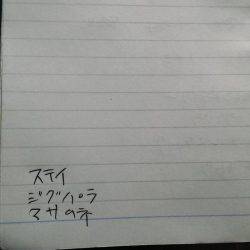 ステイ
ジグハ゜ラ
マサのネ